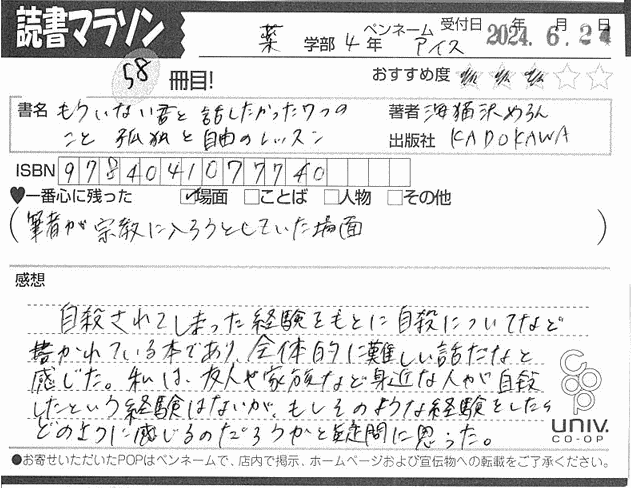 読書マラソン
薬 学部 4 年 ペンネーム アイス 受付日 2024年 6月 2日
58 冊目! おすすめ度 ★★★☆☆
書名 もういない君と話したかった7つの
こと 孤独と自由のレッスン
著者 海猫沢めろん
出版社 KADOKAWA
ISBN 9784041077740
♥一番心に残った ☑場面 □ことば □人物 □その他
(筆者が宗教に入ろうとしていた場面)
感想
自殺されてしまった経験をもとに自殺についてなど
書かれている本であり、全体的に難しい話だなと
感じた。私は、友人や家族など身近な人が自殺
したという経験はないが、もしそのような経験をしたら
どのように感じるのだろうかと疑問に思った。
coop
UNIV.
CO-OP
●お寄せいただいたPOPはペンネームで、店内で掲示、ホームページおよび宣伝物への転載をご了承ください。